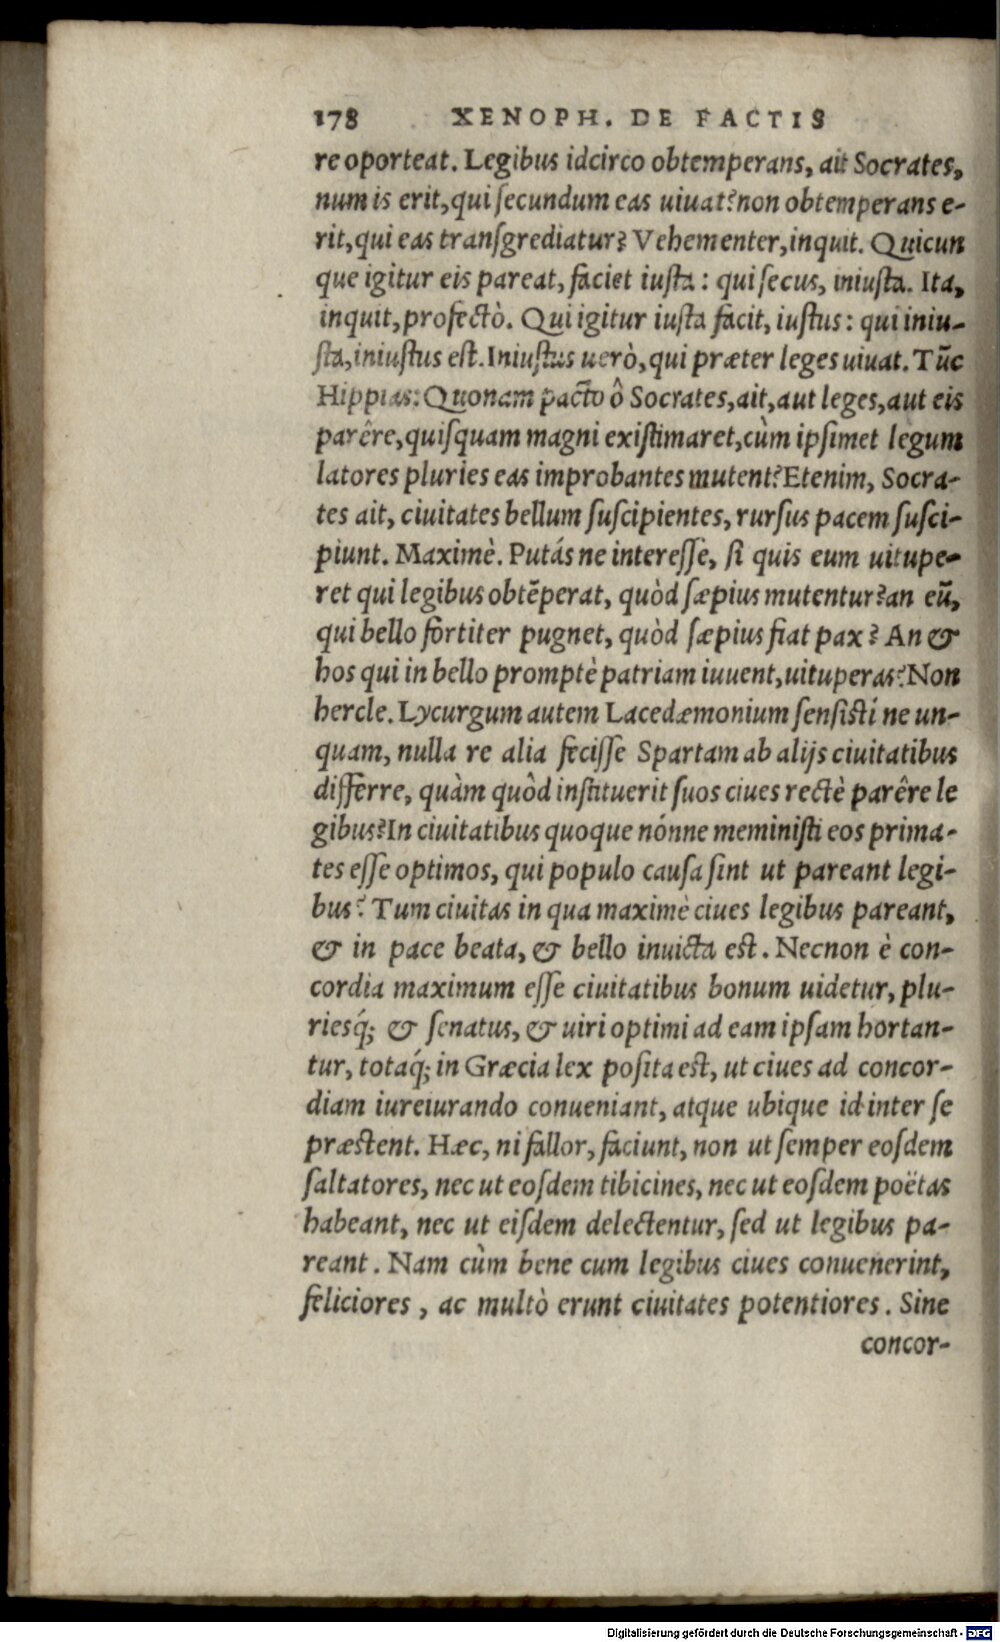 178 XENOPH. DE FACTIS
re oporteat. Legibus idcirco obtemperans, ait Socrates,
num is erit, qui ſecundum eas uiuat? non obtemperans e-
rit, qui eas tranſgrediatur? Vehementer, inquit. Quicun
que igitur eis pareat, faciet iuſta: qui ſecus, iniuſta. Ita,
inquit, profectò. Qui igitur iuſta facit, iuſtus: qui iniu-
ſta, iniuſtus eſt. Iniuſtus uerò, qui præter leges uiuat. Tūc
Hippias: Quonam pacto ô Socrates, ait, aut leges, aut eis
parêre, quiſquam magni exiſtimaret, cùm ipſimet legum
latores pluries eas improbantes mutent? Etenim, Socra-
tes ait, ciuitates bellum ſuſcipientes, rurſus pacem ſuſci-
piunt. Maximè. Putás ne intereſſe, ſi quis eum uitupe-
ret qui legibus obtēperat, quòd ſæpius mutentur? an eū,
qui bello fortiter pugnet, quòd ſæpius fiat pax? An &
hos qui in bello promptè patriam iuuent, uituperas? Non
hercle. Lycurgum autem Lacedæmonium ſenſiſtí ne un-
quam, nulla re alia feciſſe Spartam ab alijs ciuitatibus
differre, quàm quòd inſtituerit ſuos ciues rectè parêre le
gibus? In ciuitatibus quoque nónne meminiſti eos prima-
tes eſſe optimos, qui populo cauſa ſint ut pareant legi-
bus? Tum ciuitas in qua maximè ciues legibus pareant,
& in pace beata, & bello inuicta eſt. Necnon è con-
cordia maximum eſſe ciuitatibus bonum uidetur, plu-
riesq́; & ſenatus, & uiri optimi ad eam ipſam hortan-
tur, totaq́; in Græcia lex poſita eſt, ut ciues ad concor-
diam iureiurando conueniant, atque ubique id inter ſe
præſtent. Hæc, ni fallor, faciunt, non ut ſemper eoſdem
ſaltatores, nec ut eoſdem tibicines, nec ut eoſdem poëtas
habeant, nec ut eiſdem delectentur, ſed ut legibus pa-
reant. Nam cùm bene cum legibus ciues conuenerint,
feliciores, ac multò erunt ciuitates potentiores. Sine
concor-
Digitalisierung gefördert durch die Deutsche Forschungsgemeinschaft - DFG